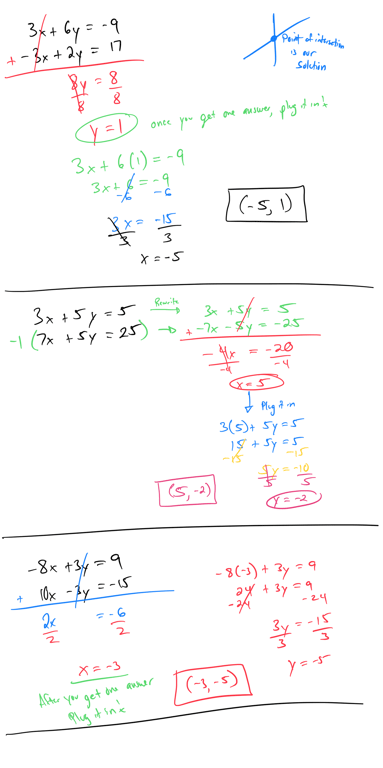 3x + 6y = -9
+ -3x + 2y = 17
8y = 8
8 8
y = 1
once you get one answer, plug it in!
Point of intersection
is our
solution
3x + 6(1) = -9
3x + 6 = -9
-6 -6
3x = -15
3 3
x = -5
(-5, 1)
3x + 5y = 5
-1 (7x + 5y = 25)
Rewrite
3x + 5y = 5
+ -7x - 5y = -25
-4x = -20
-4 -4
x = 5
Plug it in
3(5) + 5y = 5
15 + 5y = 5
-15 -15
5y = -10
5 5
y = -2
(5, -2)
-8x + 3y = 9
+ 10x - 3y = -15
2x = -6
2 2
x = -3
After you get one answer
Plug it in!
-8(-3) + 3y = 9
24 + 3y = 9
-24 -24
3y = -15
3 3
y = -5
(-3, -5)